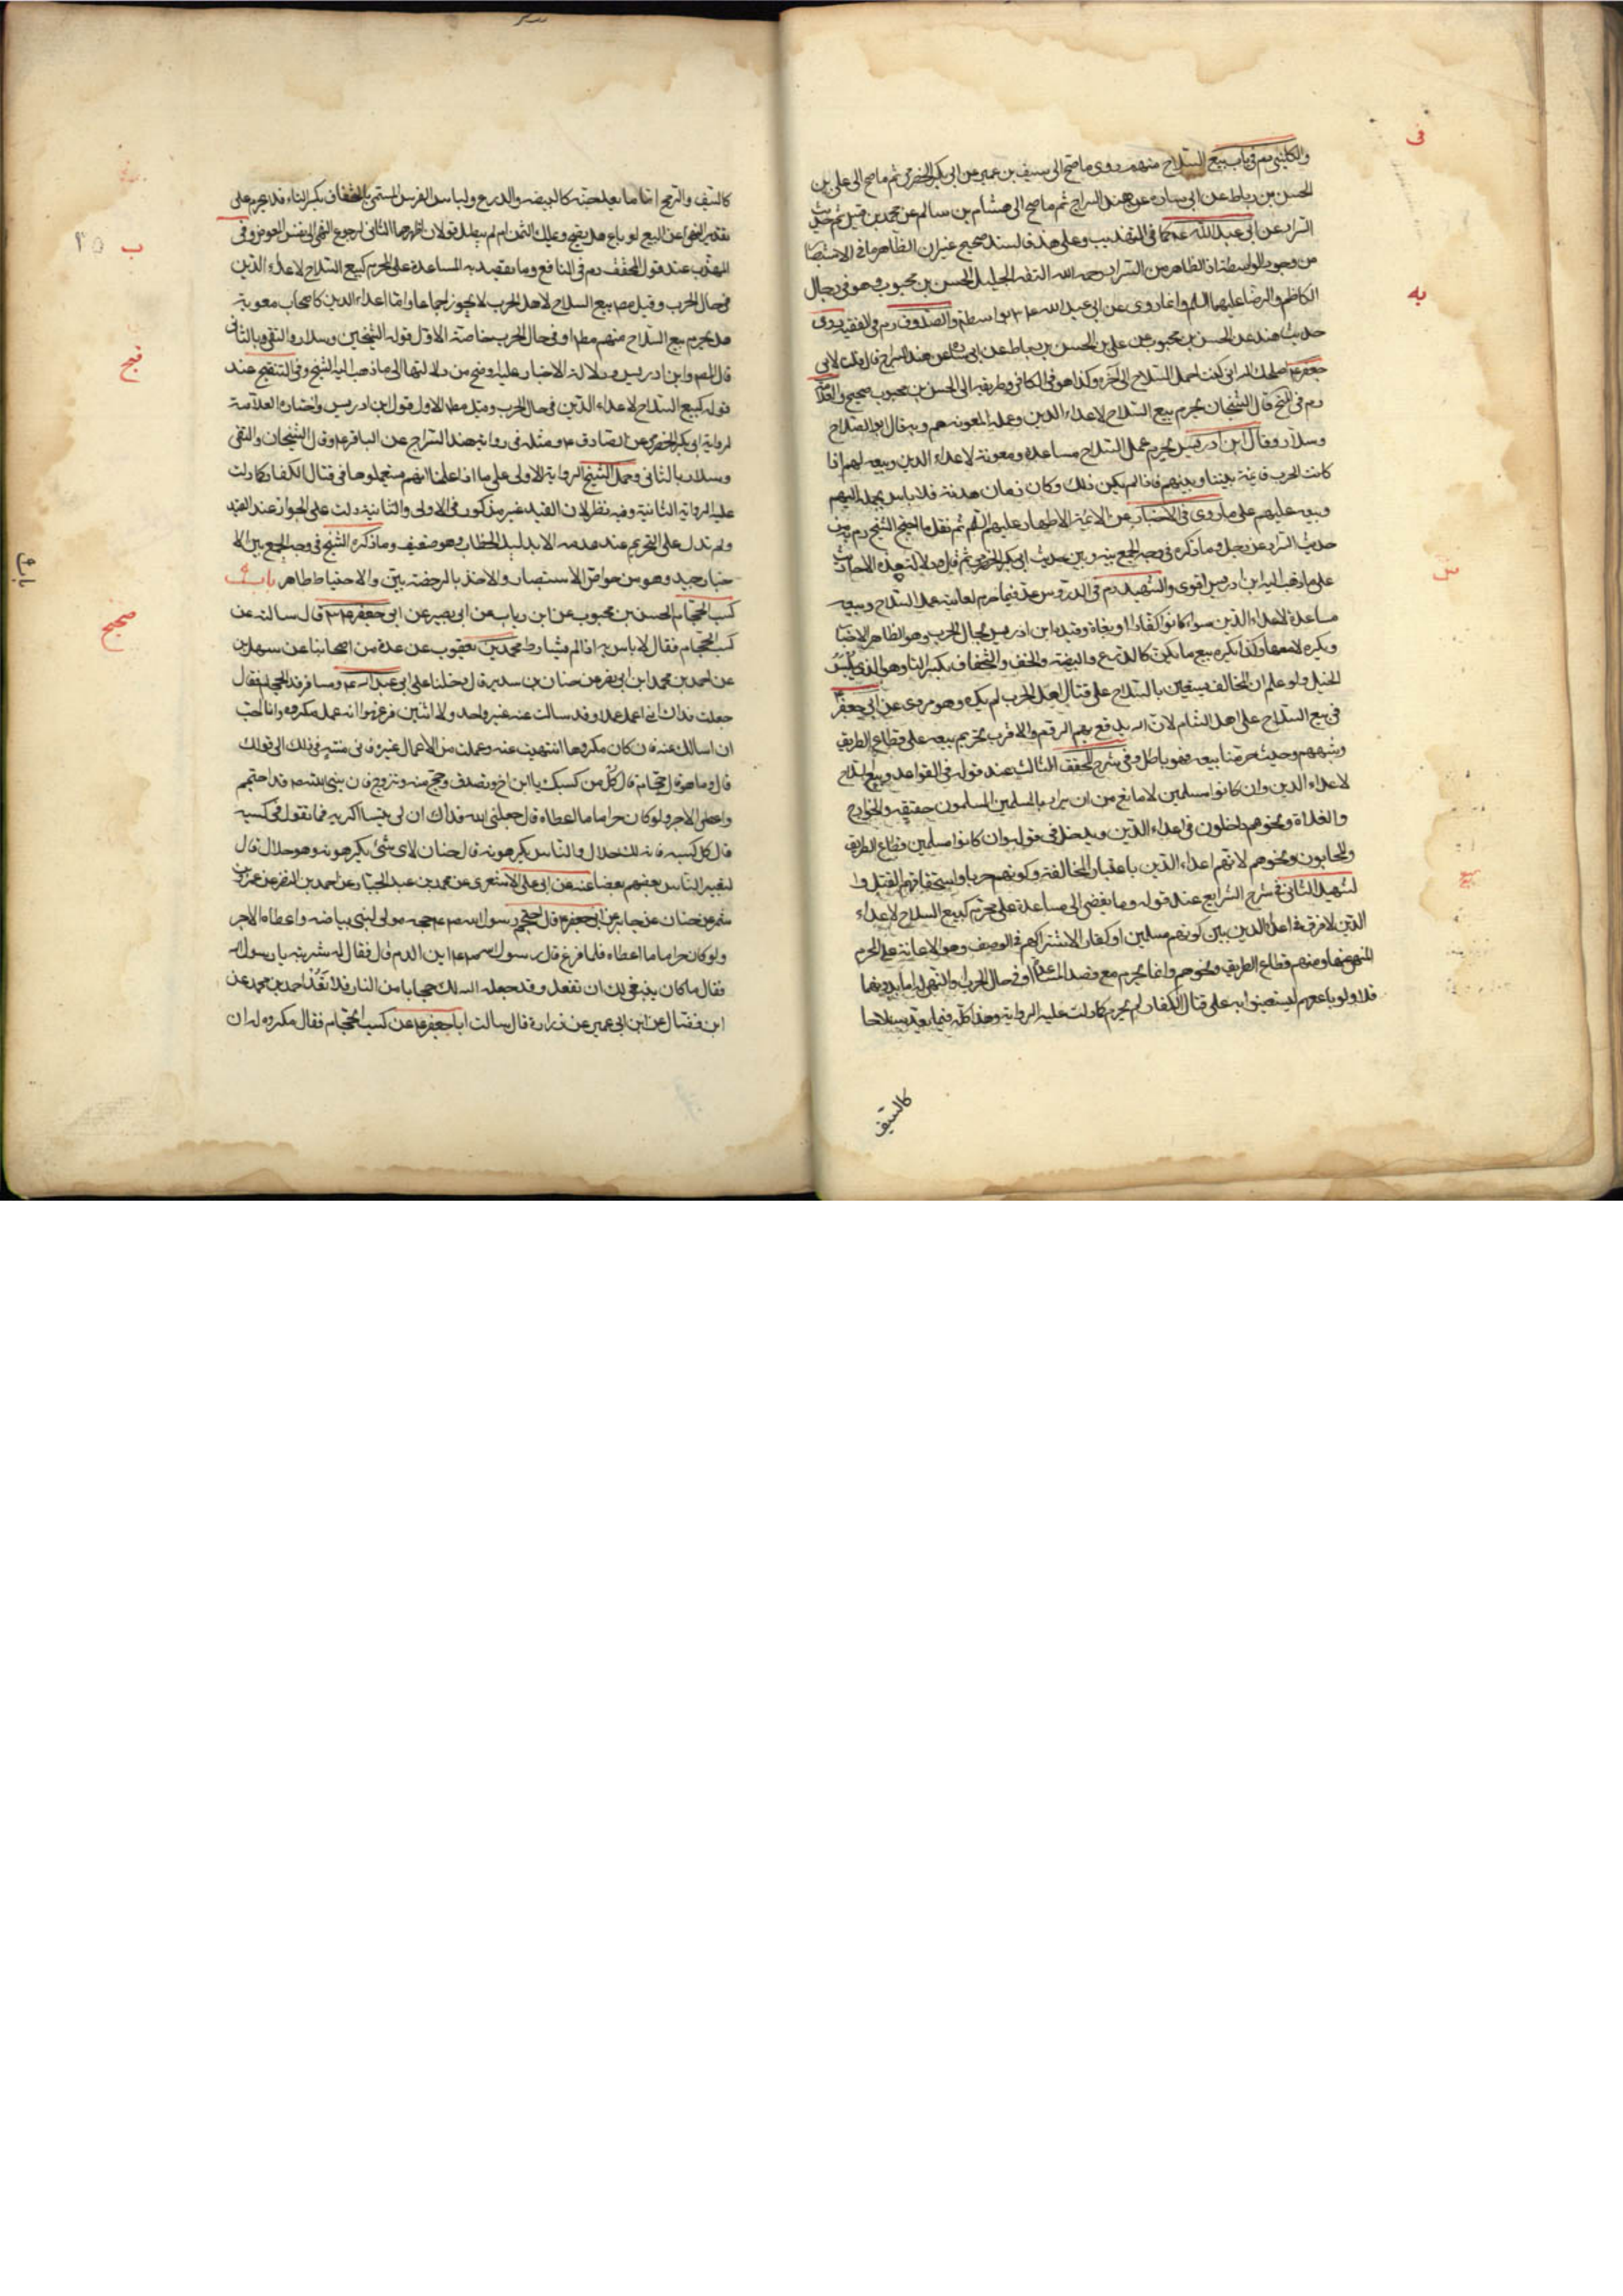 والكليني رم في باب بيع السلاح منهم روى ما صح الى سيف بن عميرة عن ابي بكر الحضرمي ثم ما صح الى علي بن
الحسن بن رباط عن ابي سارة عن هند السراج ثم ما صح الى هشام بن سالم عن محمد بن قيس ثم حديث
السراد عن ابي عبد الله عم كما في التهذيب وعلى هذا فالسند صحيح غير ان الظاهر ما في الاستبصار
من وجود الواسطة اذ الظاهر من السراد رحمه الله الثقة الجليل الحسن بن محبوب وهو في رجال
الكاظم والرضا عليهما السلم وانما روى عن ابي عبد الله عم بواسطة والصدوق رم في الفقيه روى
حديث هند عن الحسن بن محبوب عن علي بن الحسن بن رباط عن ابي سارة عن هند السراج قال قلت لابي
جعفر عم اصلحك الله اني كنت احمل السلاح الى آخره وكذا هو في الكافي وطريقه الى الحسن بن محبوب صحيح والعلامة
رم في قال الشيخان يحرم بيع السلاح لاعداء الدين وعمله لمعونتهم وبه قال ابو الصلاح
وسلار وقال ابن ادريس يحرم عمل السلاح مساعدة ومعونة لاعداء الدين وبيعه لهم اذا
كانت الحرب قائمة بيننا وبينهم فاذا لم يكن ذلك وكان زمان هدنة فلا باس بحمله اليهم
وبيعه عليهم على ما روى في الاخبار عن الائمة الاطهار عليهم السلم ثم نقل ما احتج الشيخ رم به من
حديث السراد عن رجل وما ذكره في وجه الجمع بينه وبين حديث ابي بكر الحضرمي ثم قال ودلالة هذه الاحاديث
على ما ذهب اليه ابن ادريس اقوى والشهيد رم في الدروس عد فيما حرم لغايته عمل السلاح وبيعه
مساعدة لاعداء الدين سواء كانوا كفارا او بغاة وقيده ابن ادريس بحال الحرب وهو الظاهر الاخبار
ويكره لا معها وكذا يكره بيع ما يكن كالدرع والبيضة والخف والتخفاف بكسر التا وهو الذي يلبس
الخيل ولو علم ان المخالف يستعين بالسلاح على قتال اهل الحرب لم يكره وهو مروى عن ابي جعفر عم
في بيع السلاح على اهل الشام لان الله يدفع بهم الروم والاقرب تحريم بيعه على قطاع الطريق
وشبههم وحيث حرمنا بيعه فهو باطل وفي شرح المحقق الثالث عند قوله في القواعد وبيع السلاح
لاعداء الدين وان كانوا مسلمين لا مانع من ان يراد بالمسلمين المسلمون حقيقة والخوارج
والغلاة ونحوهم داخلون في اعداء الدين ويدخل في قوله وان كانوا مسلمين قطاع الطريق
والمحاربون ونحوهم لانهم اعداء الدين باعتبار المخالفة وكونهم حربا واستحقاقهم القتل وا
لشهيد الثاني في شرح الشرايع عند قوله وما يفضى الى مساعدة على محرم كبيع السلاح لاعداء
الدين لا فرق في اعداء الدين بين كونهم مسلمين او كفارا لاشتراكهم في الوصف وهو الاعانة على المحرم
المنهي عنها ومنهم قطاع الطريق ونحوهم وانما يحرم مع قصد المساعدة او في حال الحرب والتهيؤ له اما بدونهما
فلا ولو باعهم ليستعينوا به على قتال الكفار لم يحرم كما دلت عليه الرواية وهذا كله فيما يعد سلاحا
كالسيف
كالسيف والرمح اما ما يعد جنة كالبيضة والدرع ولباس الفرس المسمى بالتخفاف بكسر التاء فلا يحرم على
تقدير النهي عن البيع لو باع هل يصح ويملك الثمن ام لم يبطل قولان اظهرهما الثاني لرجوع النهي الى نفس العوض وفي
المهذب عند قول المحقق رم في النافع وما يقصد به المساعدة على المحرم كبيع السلاح لاعداء الدين
في حال الحرب وقيل مطلقا بيع السلاح لاهل الحرب لا يجوز اجماعا واما اعداء الدين كاصحاب معوية
هل يحرم بيع السلاح منهم مطلقا او في حال الحرب خاصة الاول قوله الشيخين وسلار والتقي وبالثاني
قال المص وابن ادريس ودلالة الاخبار عليه اوضح من دلالتها الى ما ذهب اليه الشيخ وفي التنقيح عند
قوله كبيع السلاح لاعداء الدين في حال الحرب وقيل مطلقا الاول قول ابن ادريس واختاره العلامة
لرواية ابي بكر الحضرمي عن الصادق عم ومثله في رواية هند السراج عن الباقر عم وقال الشيخان والتقي
وسلار بالثاني وحمل الشيخ الرواية الاولى على ما اذا علمنا انهم يستعملوها في قتال الكفار كما دلت
عليه الرواية الثانية وفيه نظر لان القيد غير مذكور في الاولى والثانية دلت على الجواز عند القيد
ولم تدل على التحريم عند عدمه الا بدليل الخطاب وهو ضعيف وما ذكره الشيخ في وجه الجمع بين الا
خبار جيد وهو من خواص الاستبصار والاخذ بالرخصة بين والاحتياط ظاهر باب
كسب الحجام الحسن بن محبوب عن ابن رياب عن ابي بصير عن ابي جعفر عم قال سالته عن
كسب الحجام فقال لا باس به اذا لم يشارط محمد بن يعقوب عن عدة من اصحابنا عن سهل بن
عن احمد بن محمد ابن ابي نصر عن حنان بن سدير قال دخلنا على ابي عبد الله عم ومعنا فرقد الحجام فقال
جعلت فداك اني اعمل عملا وقد سالت عنه غير واحد ولا اثنين فزعموا انه عمل مكروه وانا احب
ان اسالك عنه فان كان مكروها انتهيت عنه وعملت من الاعمال غيره فاني منته في ذلك الى قولك
قال وما هو قال حجام قال كل من كسبك يا ابن اخ وتصدق وحج منه وتزوج فان نبي الله صم قد احتجم
واعطى الاجر ولو كان حراما ما اعطاه قال جعلني الله فداك ان لي تيسا اكريه فما تقول في كسبه
قال كل كسبه فانه لك حلال والناس يكرهونه قال حنان لاى شئ يكرهونه وهو حلال قال
لتعيير الناس بعضهم بعضا عنه عن ابي علي الاشعري عن محمد بن عبد الجبار عن احمد بن النضر عن عمرو بن
شمر عن جابر عن ابي جعفر عم قال احتجم رسول الله صم حجمه مولى لبني بياضة واعطاه الاجر
ولو كان حراما ما اعطاه فلما فرغ قال رسول الله صم اين الدم قال فقال له شربته يا رسول الله
فقال ما كان ينبغي لك ان تفعل وقد جعله الله لك حجابا من النار فلا تعد احمد بن محمد عن
ابن فضال عن ابن ابي عمير عن زرارة قال سالت ابا جعفر عم عن كسب الحجام فقال مكروه له ان
صحيح